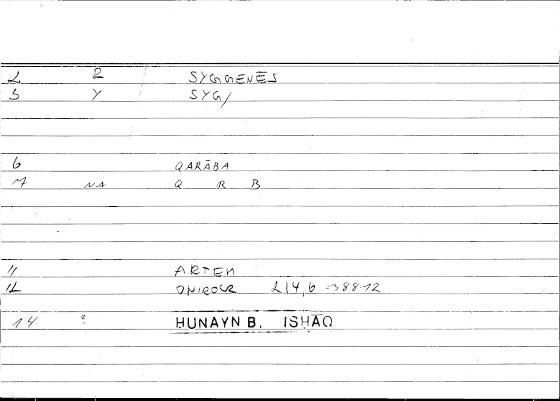 2 R SYGGENĒS
3 Y SYG/
6 QARĀBA
7 NA Q R B
11 ARTEM
12 ONIROCR 214,6 = 388-12
14 ? HUNAYN B. ISHĀQ